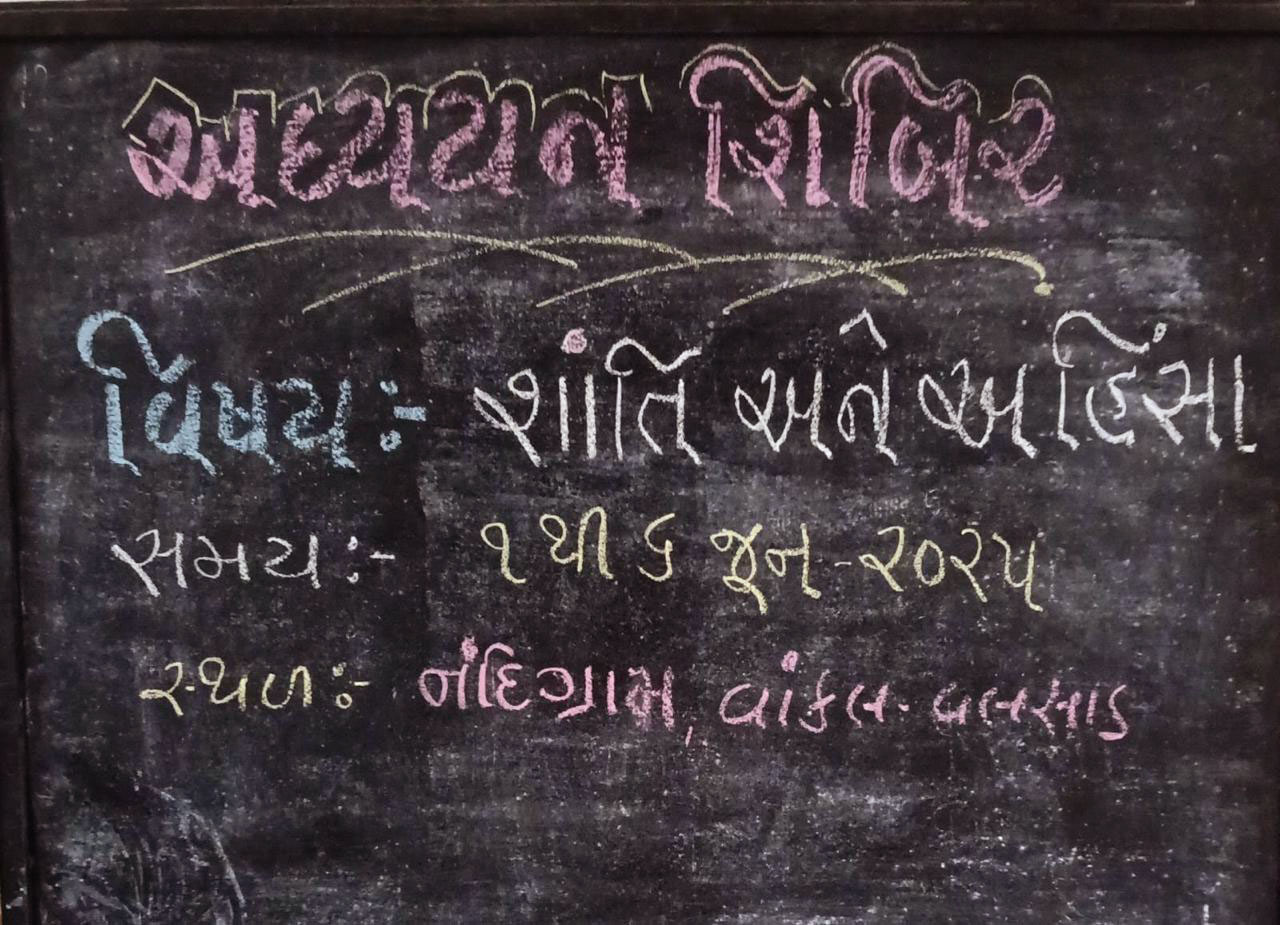 અધ્યયન શિબિર
વિષય:- શાંતિ અને અહિંસા
સમય:- ૧ થી ૬ જૂન-૨૦૨૫
સ્થળ:- નંદિગ્રામ, વાંકલ-વલસાડ